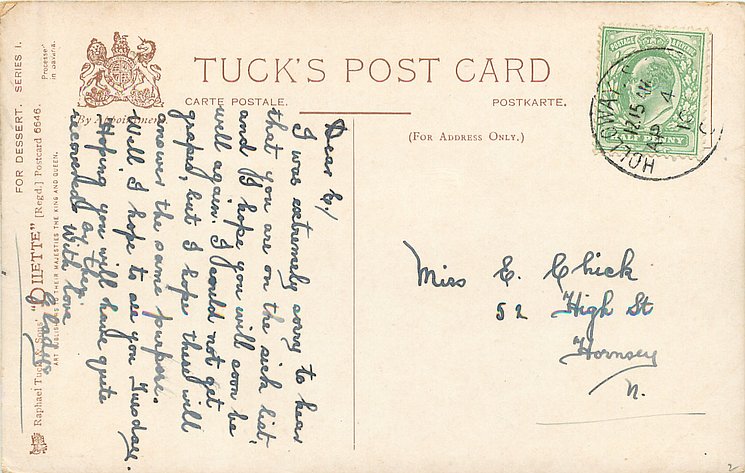 TUCK'S POST CARD
CARTE POSTALE.
POSTKARTE.
(FOR ADDRESS ONLY.)
By Appointment
FOR DESSERT. SERIES I.
Processed in Bavaria.
Raphael Tuck & Sons' "OILETTE" [Regd.] Postcard 6646.
ART PUBLISHERS TO THEIR MAJESTIES THE KING AND QUEEN.
POSTAGE
HALF PENNY
HOLLOWAY
12.15 AM
AP 4
10
Dear E/
I was extremely sorry to hear
that you are on the sick list,
and I hope you will soon be
well again. I could not get
grapes, but I hope these will
answer the same purpose.
Well I hope to see you Tuesday.
Hoping you will have quite
recovered by then.
With love
Gladys
Miss E. Chick
52 High St
Hornsey
N.
2